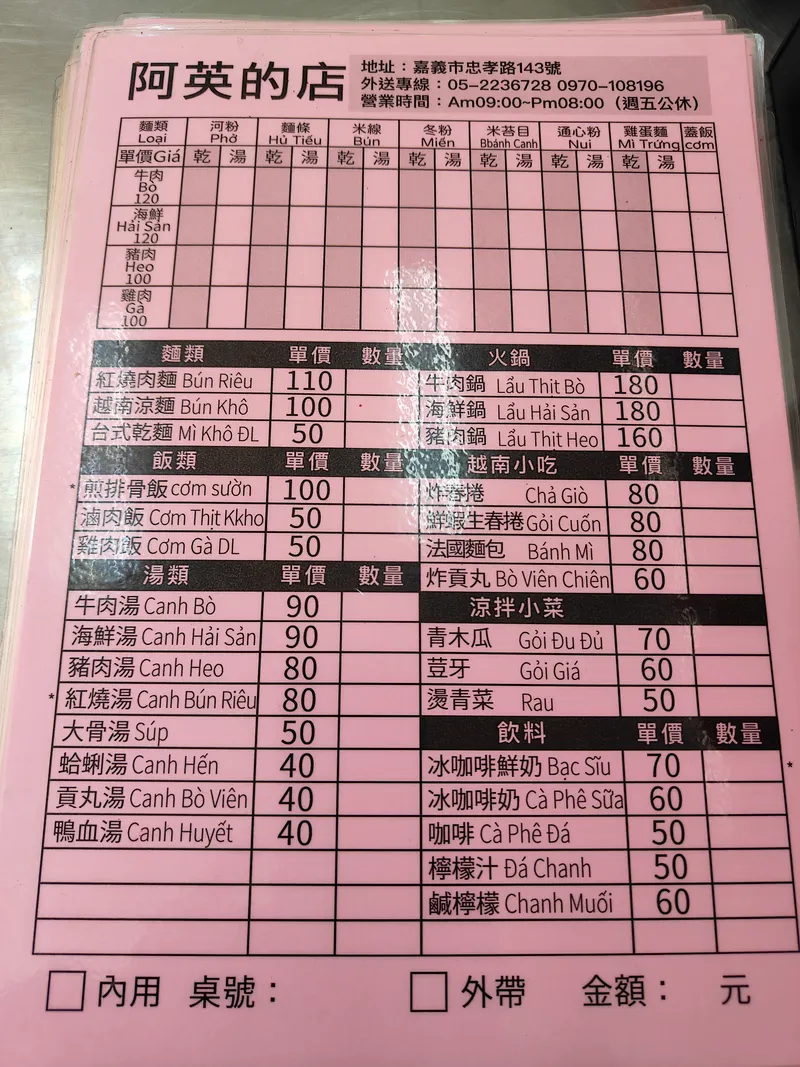 阿英的店
地址：嘉義市忠孝路143號
外送專線：05-2236728 0970-108196
營業時間：Am09:00~Pm08:00（週五公休）
麵類 河粉 麵條 米線 冬粉 米苔目 通心粉 雞蛋麵 蓋飯
Loại Phở Hủ Tiếu Bún Miến Bbánh Canh Nui Mì Trứng cơm
單價Giá 乾 湯 乾 湯 乾 湯 乾 湯 乾 湯 乾 湯 乾 湯
牛肉
Bò
120
海鮮
Hải Sản
120
豬肉
Heo
100
雞肉
Gà
100
麵類 單價 數量
紅燒肉麵 Bún Riêu 110
越南涼麵 Bún Khô 100
台式乾麵 Mì Khô ĐL 50
飯類 單價 數量
*煎排骨飯 cơm sườn 100
滷肉飯 Cơm Thịt Kkho 50
雞肉飯 Cơm Gà DL 50
湯類 單價 數量
牛肉湯 Canh Bò 90
海鮮湯 Canh Hải Sản 90
豬肉湯 Canh Heo 80
*紅燒湯 Canh Bún Riêu 80
大骨湯 Súp 50
蛤蜊湯 Canh Hến 40
貢丸湯 Canh Bò Viên 40
鴨血湯 Canh Huyết 40
火鍋 單價 數量
牛肉鍋 Lẩu Thịt Bò 180
海鮮鍋 Lẩu Hải Sản 180
豬肉鍋 Lẩu Thịt Heo 160
越南小吃 單價 數量
炸春捲 Chả Giò 80
鮮蝦生春捲 Gỏi Cuốn 80
法國麵包 Bánh Mì 80
炸貢丸 Bò Viên Chiên 60
涼拌小菜
青木瓜 Gỏi Đu Đủ 70
荳牙 Gỏi Giá 60
燙青菜 Rau 50
飲料 單價 數量
冰咖啡鮮奶 Bạc Sĩu 70 *
冰咖啡奶 Cà Phê Sữa 60
咖啡 Cà Phê Đá 50
檸檬汁 Đá Chanh 50
鹹檸檬 Chanh Muối 60
內用 桌號： 外帶 金額： 元